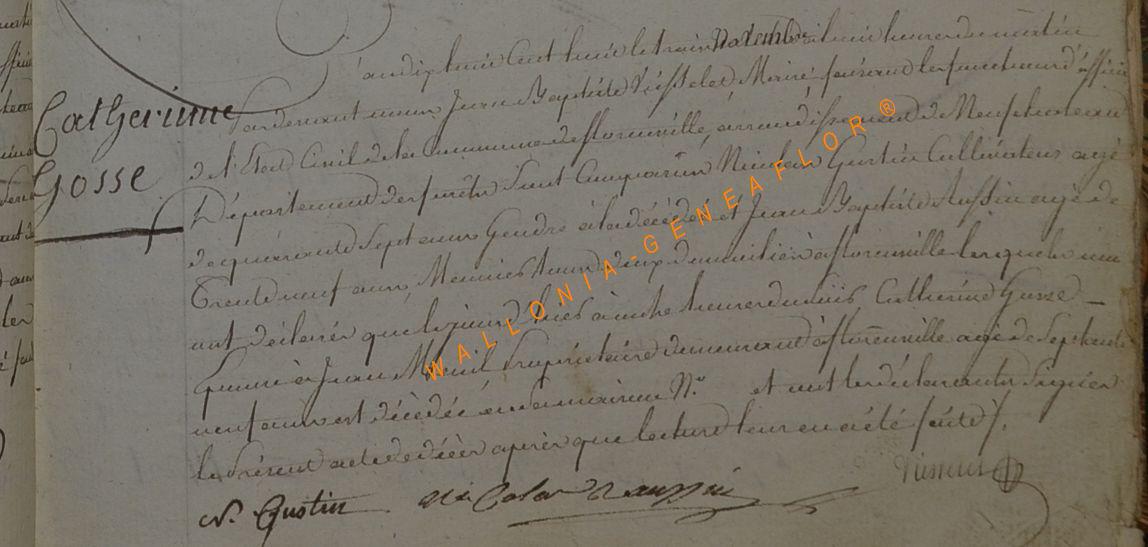 Catherinne
Gosse
L'an dix huit Cent huit le trois Novembre à huit heures du matin
Pardevant nous Jean Baptiste Maire faisant les fonctions d'officier
de l'Etat Civil de la Commune de florenville, arrondissement de Neufchateau
Département des forêts Sont Comparus Nicolas Gustin Cultivateur agé
de quarante Sept ans Gendre à la décédée et Jean Baptiste agé de
Trente neuf ans, tous deux domiciliés à florenville lesquels nous
ont déclarés que le jour d'hier à heures du Catherine Gosse
à Jean Propriétaire demeurant à florenville agée de Septante
neuf ans est décédée en sa maison N.° et ont les déclarants Signés
le Présent acte de décès après que lecture leur en a été faite /.
N. Gustin
WALLONIA-GENEAFLOR ®